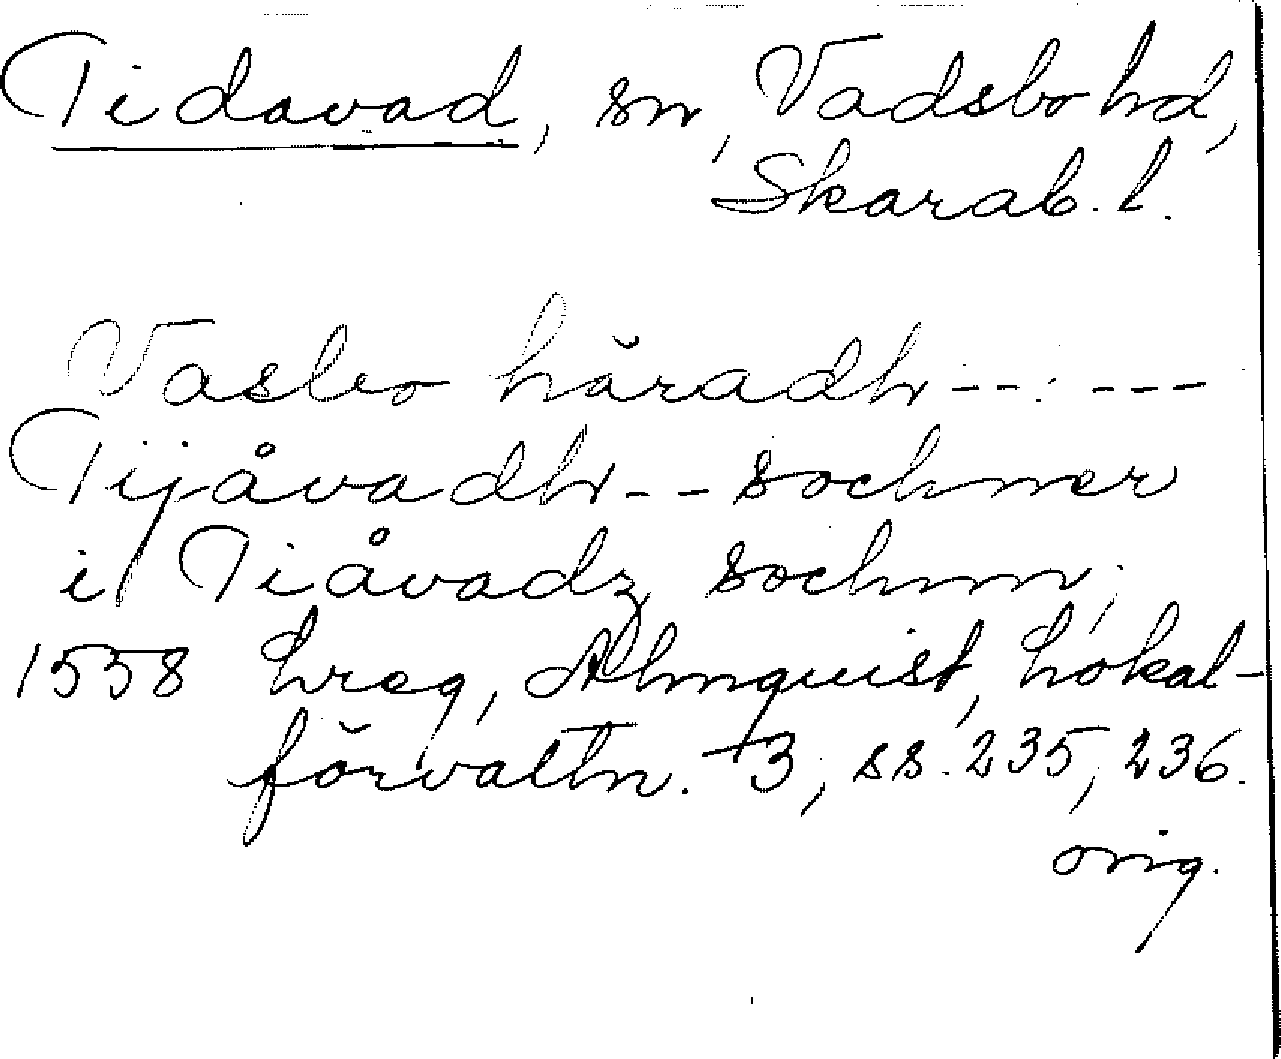 Tidavad, sn, Vadsbo hd,
Skarab. l.
Vasbo häradh -- : ---
Tijåvadh -- sochner
i Tiåvadz sochnn;
1558 hreg, Almquist, Lokal-
förvaltn. 3, ss. 235, 236.
orig.